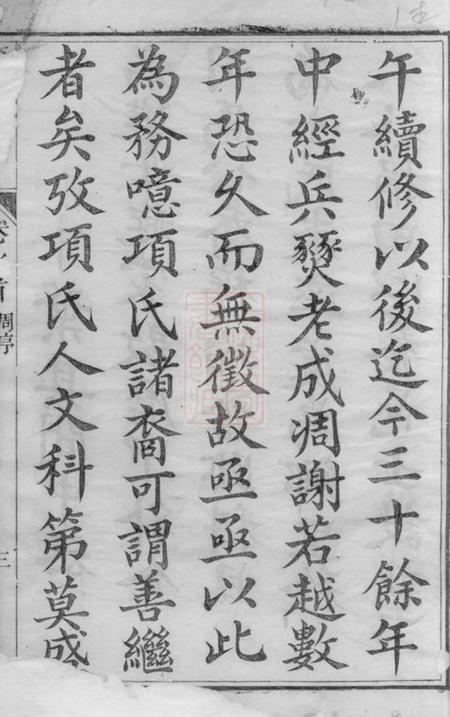 午續修以後迄今三十餘年
中經兵燹老成凋謝若越數
年恐久而無徵故亟亟以此
為務噫項氏諸裔可謂善繼
者矣攷項氏人文科第莫盛
首
三